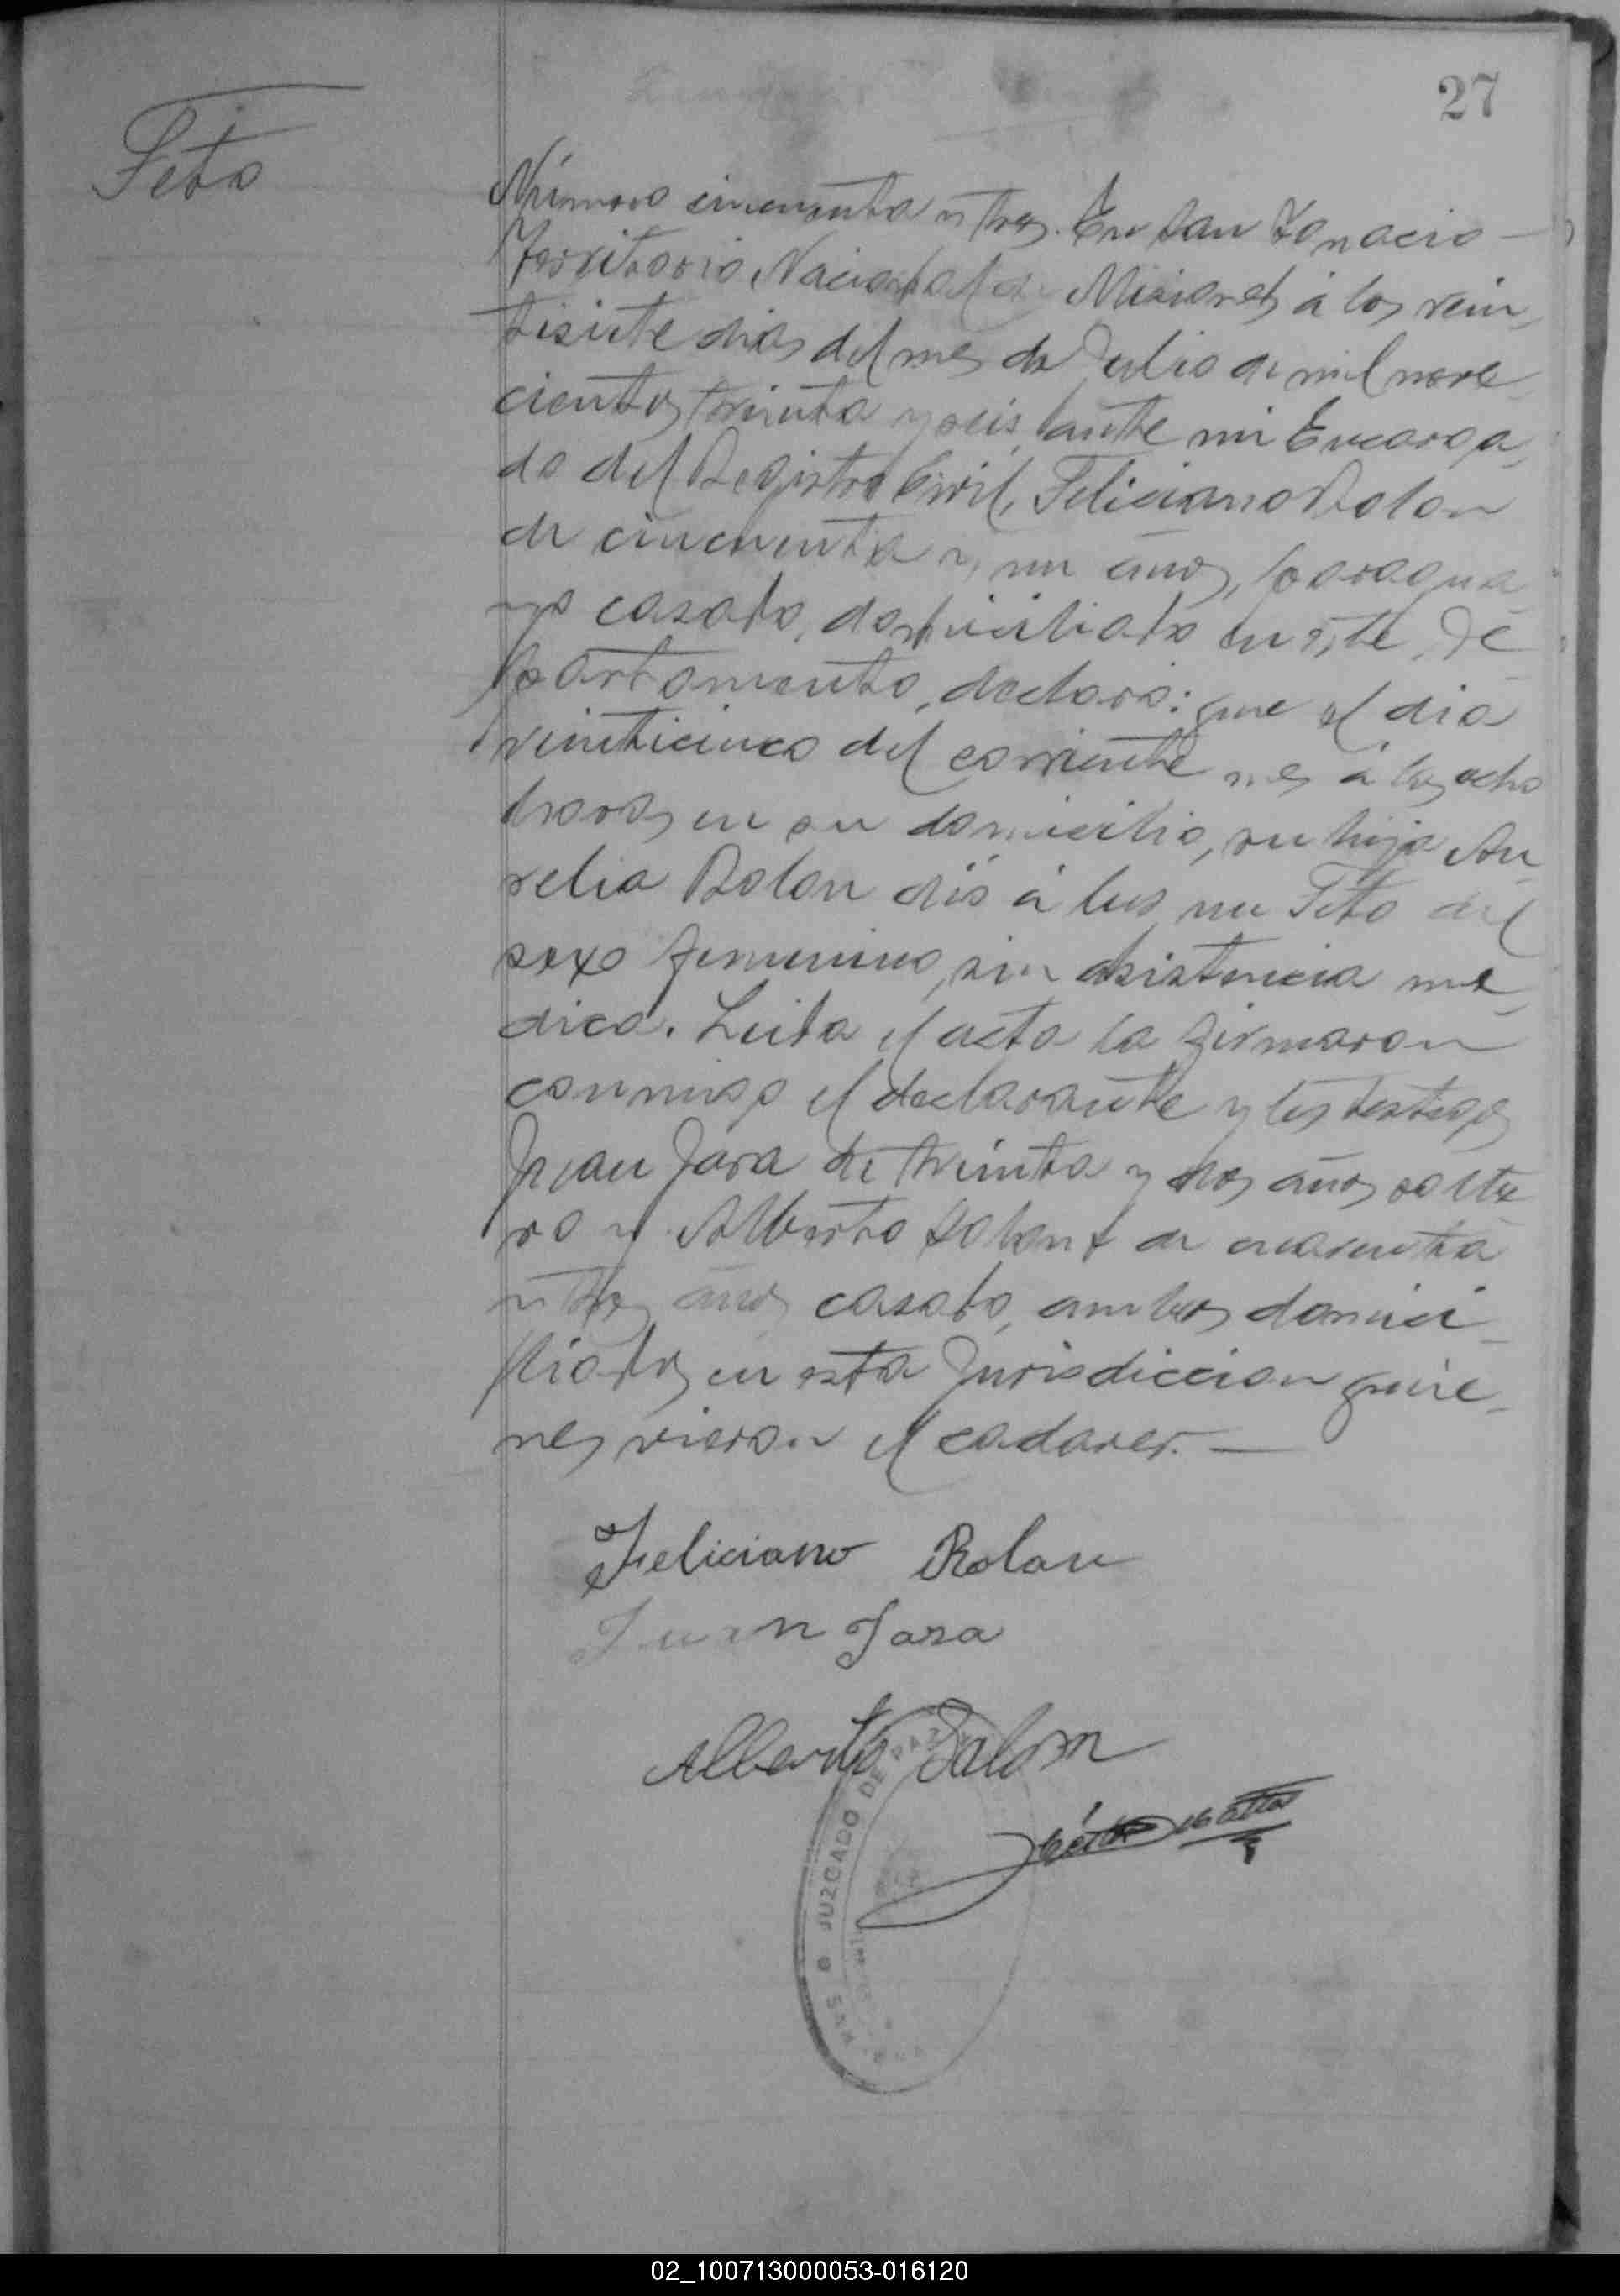 27
Feto
Número cincuenta y tres. En San Ignacio
Territorio Nacional de Misiones á los vein-
tisiete dias del mes de Julio de mil nove-
cientos treinta y seis, ante mi Encarga-
do del Registro Civil, Feliciano Rolon
de cincuenta y un años, paragua-
yo casado, domiciliado en este De-
partamento, declaró: que el dia
veinticinco del corriente mes á las ocho
horas en su domicilio, su hija Au-
relia Rolon dió á luz un Feto del
sexo femenino, sin asistencia me-
dica. Leida el acta la firmaron
conmigo el declarante y los testigos
Juan Jara de treinta y dos años solte-
ro y Alberto de cuarenta
y tres años casado, ambos domici-
liados en esta Jurisdiccion quie-
nes vieron el cadaver.
Feliciano Rolon
Juan Jara
Alberto
JUZGADO DE PAZ
SAN
02_100713000053-016120